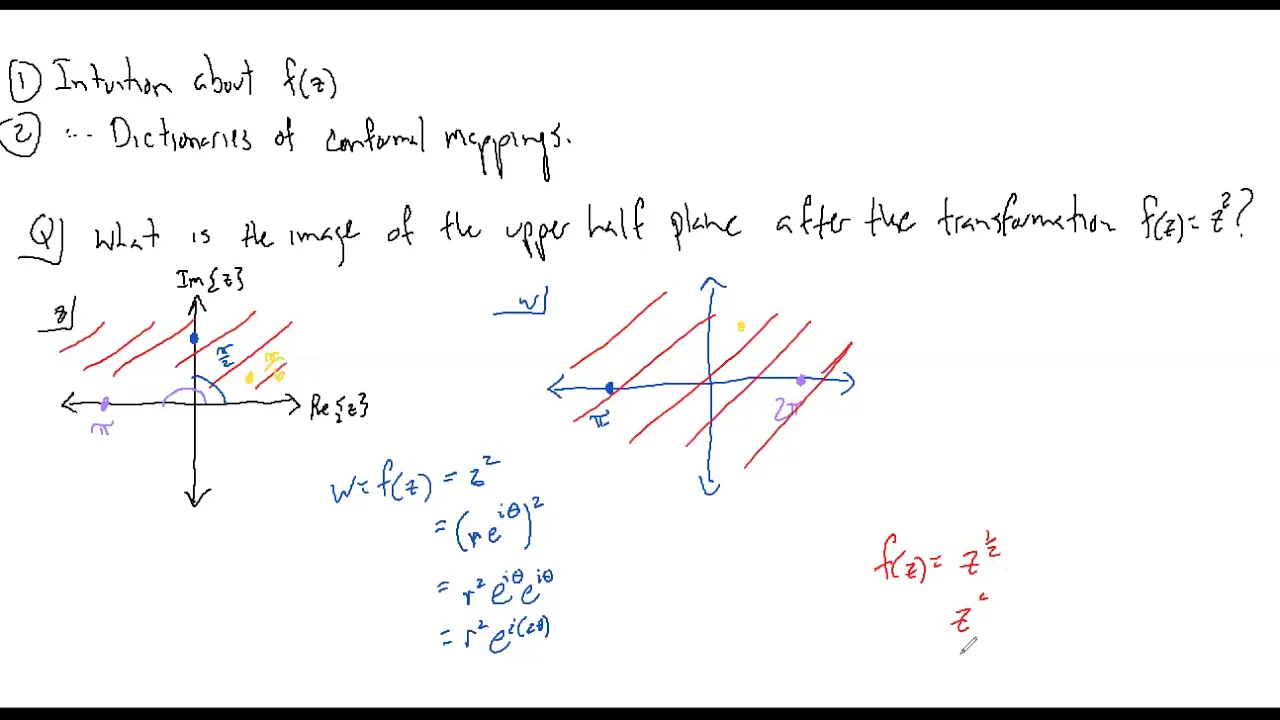 ① Intuition about f(z)
② ... Dictionaries of conformal mappings.
Q] What is the image of the upper half plane after the transformation f(z)=z²?
Im{z}
z]
w]
π/2
π/6
Re{z}
π
π
2π
w = f(z) = z²
= (re^{iθ})²
= r² e^{iθ} e^{iθ}
= r² e^{i(2θ)}
f(z) = z^{1/2}
z